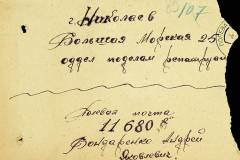 г. Николаев
107
Большая Морская 25
оддел поделам репатриац
Полевая почта
11680
Бондаренко Андрей
Яковлевич